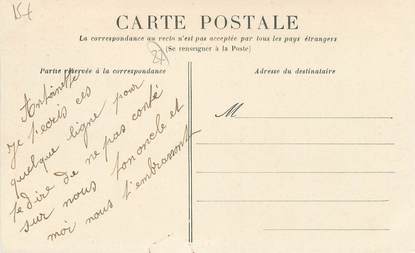 CARTE POSTALE
La correspondance au recto n'est pas acceptée par tous les pays étrangers
(Se renseigner à la Poste)
Partie réservée à la correspondance
Adresse du destinataire
Antoinette
je t'ecris ces
quelque ligne pour
te dire de ne pas conté
sur nous ton oncle et
moi nous t'embrassont
M